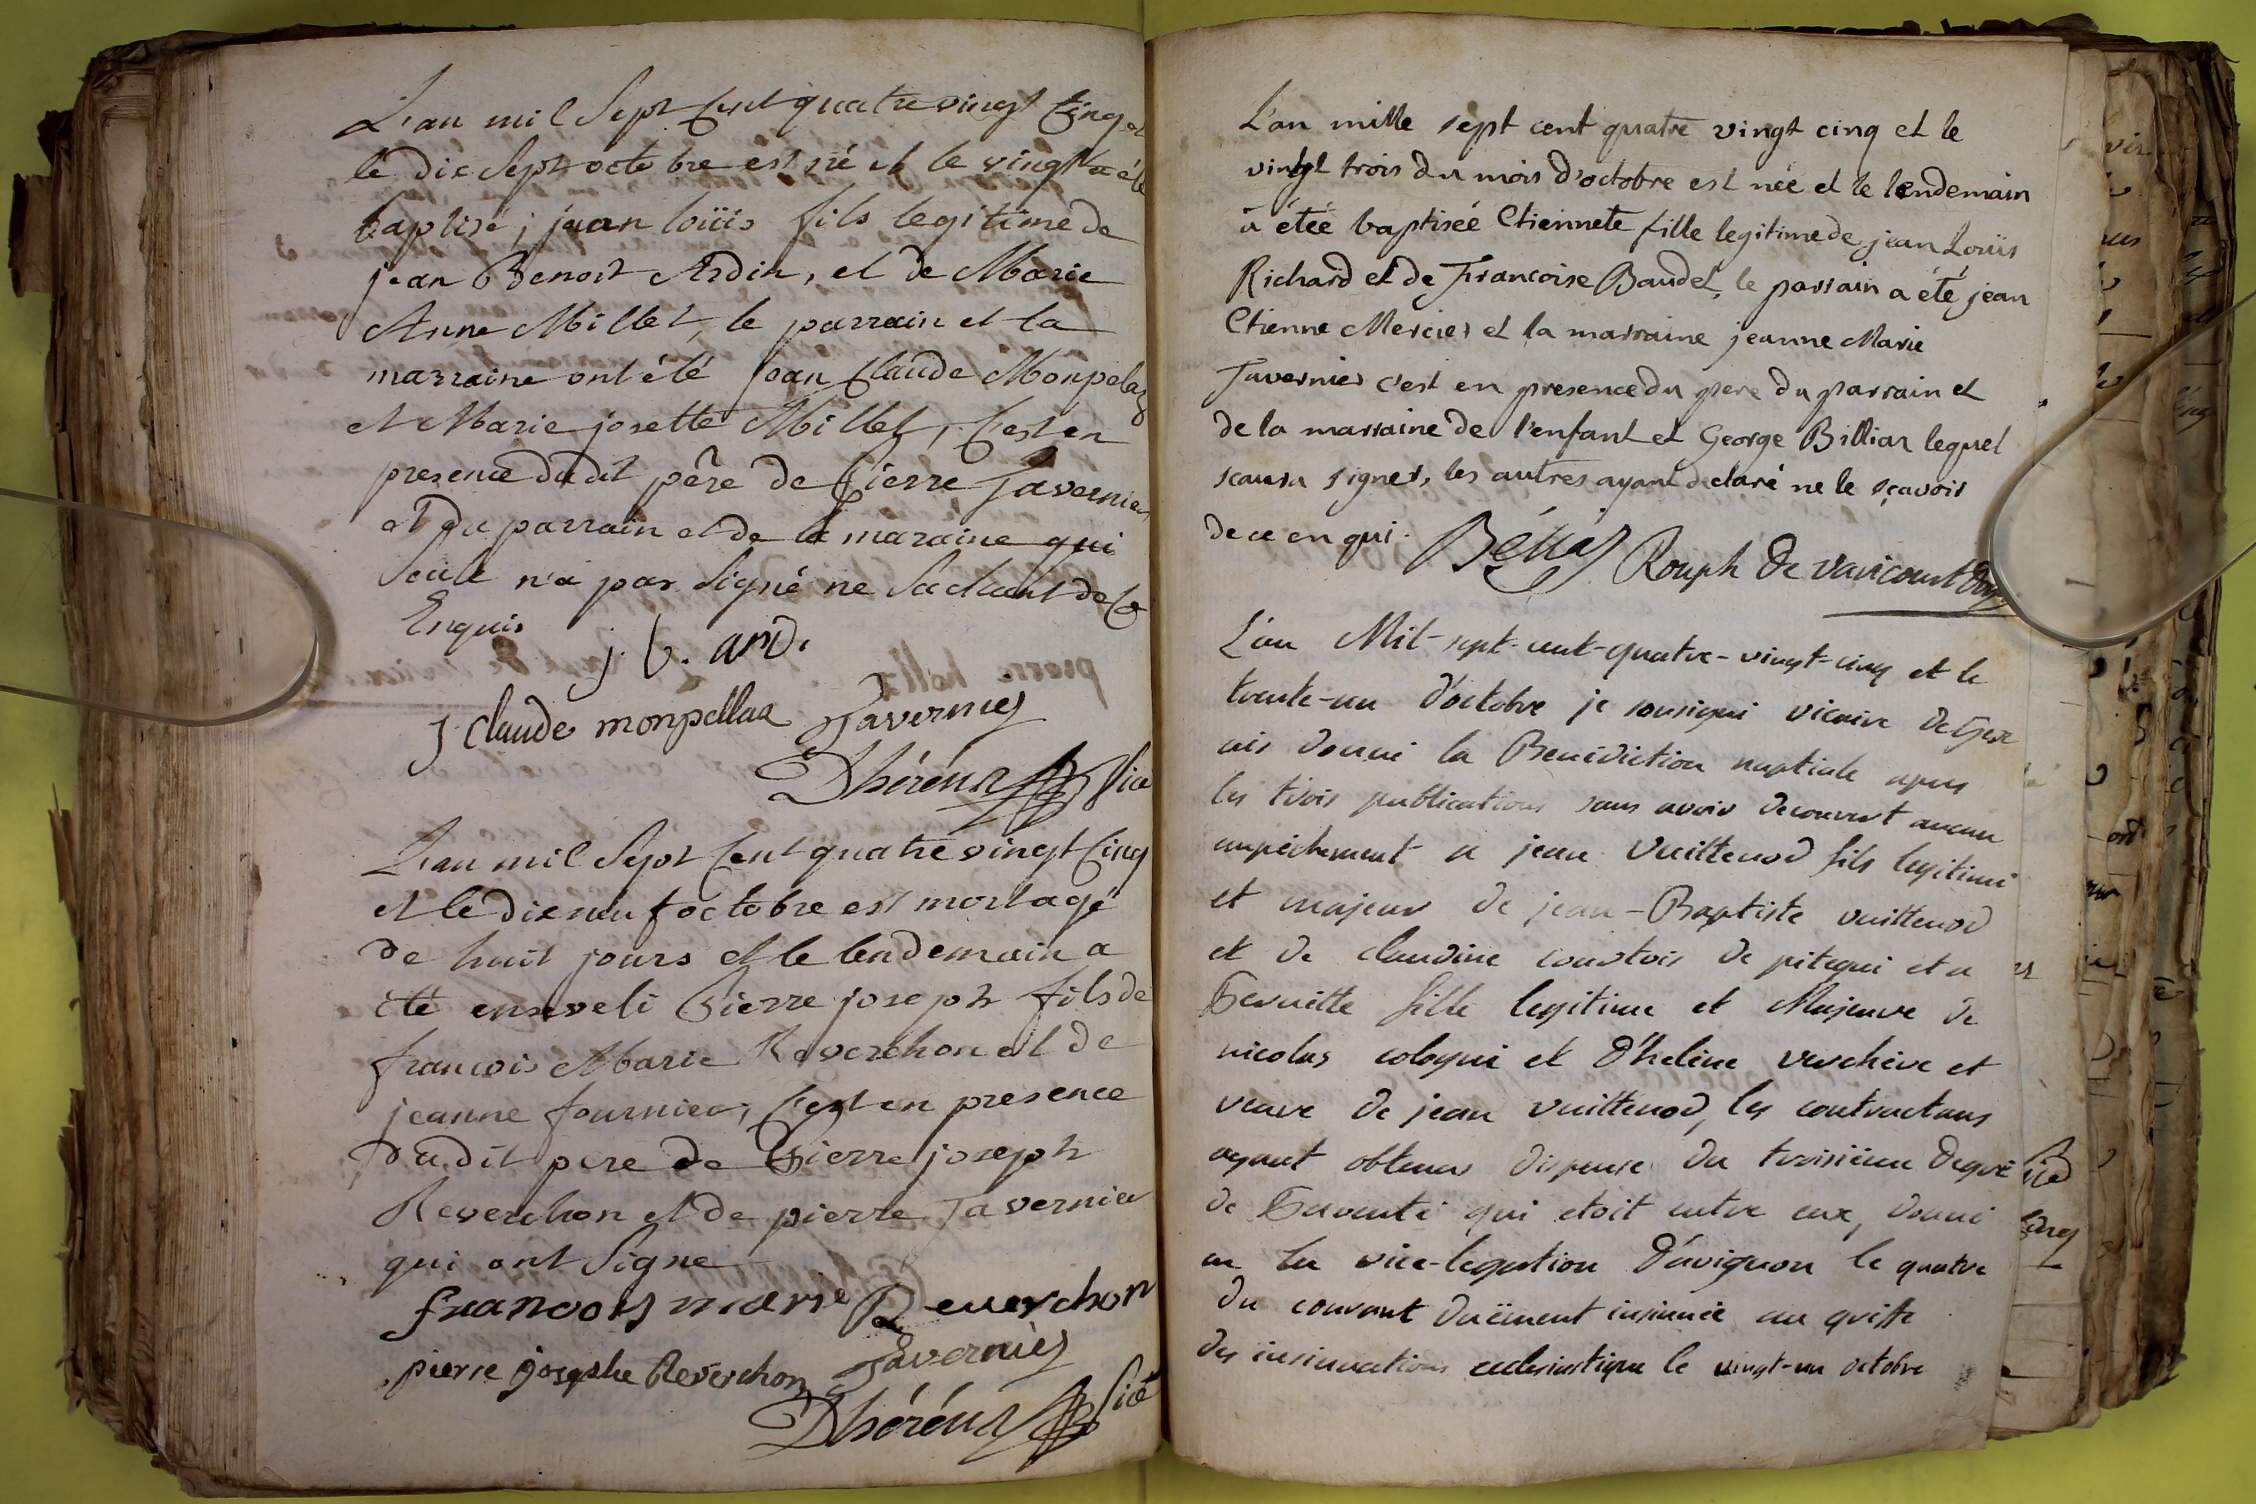 L'an mil Sept Cent quatre vingt Cinq et
le dix Sept octobre est né et le vingt a été
baptisé ; jean loüis fils legitime de
jean Benoit Ardin, et de Marie
Anne Millet, le parrain et la
marraine ont été jean Claude Monpelaz
et Marie josette Millet, C'est en
presence dudit pêre de Pierre Tavernier
et du parrain et de la maraine qui
seule n'a pas Signé ne Sachant de Ce
Enquis
j. b. ard.
j claude monpellaz Tavernier
Dhérens Vic
L'an mil Sept Cent quatre vingt Cinq
et le dix neuf octobre est mort agé
de huit jours et le lendemain a
été enseveli Pierre joseph fils de
francois Marie Reverchon et de
jeanne fournier, C'est en presence
dudit pere de Pierre joseph
Reverchon et de pierre Tavernier
qui ont Signe
francois marie Reuerchon
pierre josephe Reverchon Tavernier
Dhérens Vic
L'an mille sept cent quatre vingt cinq et le
vingt trois du mois d'octobre est née et le lendemain
a étée baptisée Etiennete fille legitime de jean Louïs
Richard et de Francoise Baudet, le parrain a été jean
Etienne Mercier et la marraine jeanne Marie
Tavernier c'est en presence du pere du parrain et
de la marraine de l'enfant et George Billiar lequel
scaura signer, les autres ayant declaré ne le sçavoir
de ce enqui.
Rouph de varicourt
L'an Mil-sept-cent-quatre-vingt-cinq et le
trente-un d'octobre je sousigné vicaire de Gex
ais donné la Benediction nuptiale apres
les trois publications sans avoir decouvert aucun
empéchement a jean Vuittenod fils legitime
et majeur de jean-Baptiste vuittenod
et de claudine courtois de pitegni et a
Pernette fille legitime et Majeure de
nicolas cologni et d'heléne verchére et
veuve de jean vuittenod, les contractans
ayant obtenus dispense du troisiéme degré
de Parenté qui etoit entre eux, donné
en la vice-legation d'avignon le quatre
du courant duëment insinuée au greffe
des insinuations ecclesiastique le vingt-un octobre